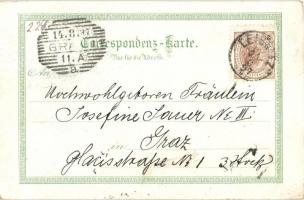 22/8
14.8.97
GRAZ
11.A
a
Correspondenz-Karte.
Nur für die Adresse.
An
Hochwohlgeboren Fräulein
Josefine Sauer N: III
Graz
Glacisstraße No 1 3. Stock